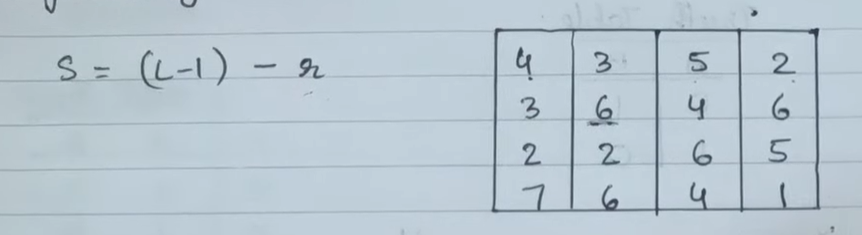 S = (L-1) - r
4 3 5 2
3 6 4 6
2 2 6 5
7 6 4 1